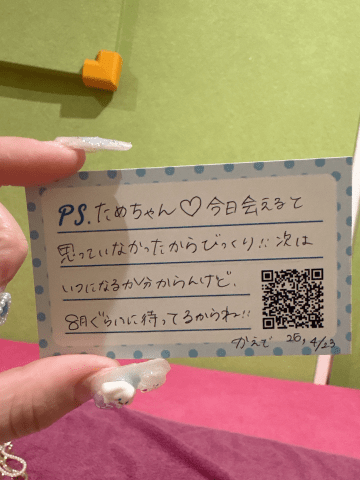 PS.ためちゃん♡今日会えると
思っていなかったからびっくり!!次は
いつになるか分からんけど、
8月ぐらいに待ってるからね!!
かえで 25, 4/23